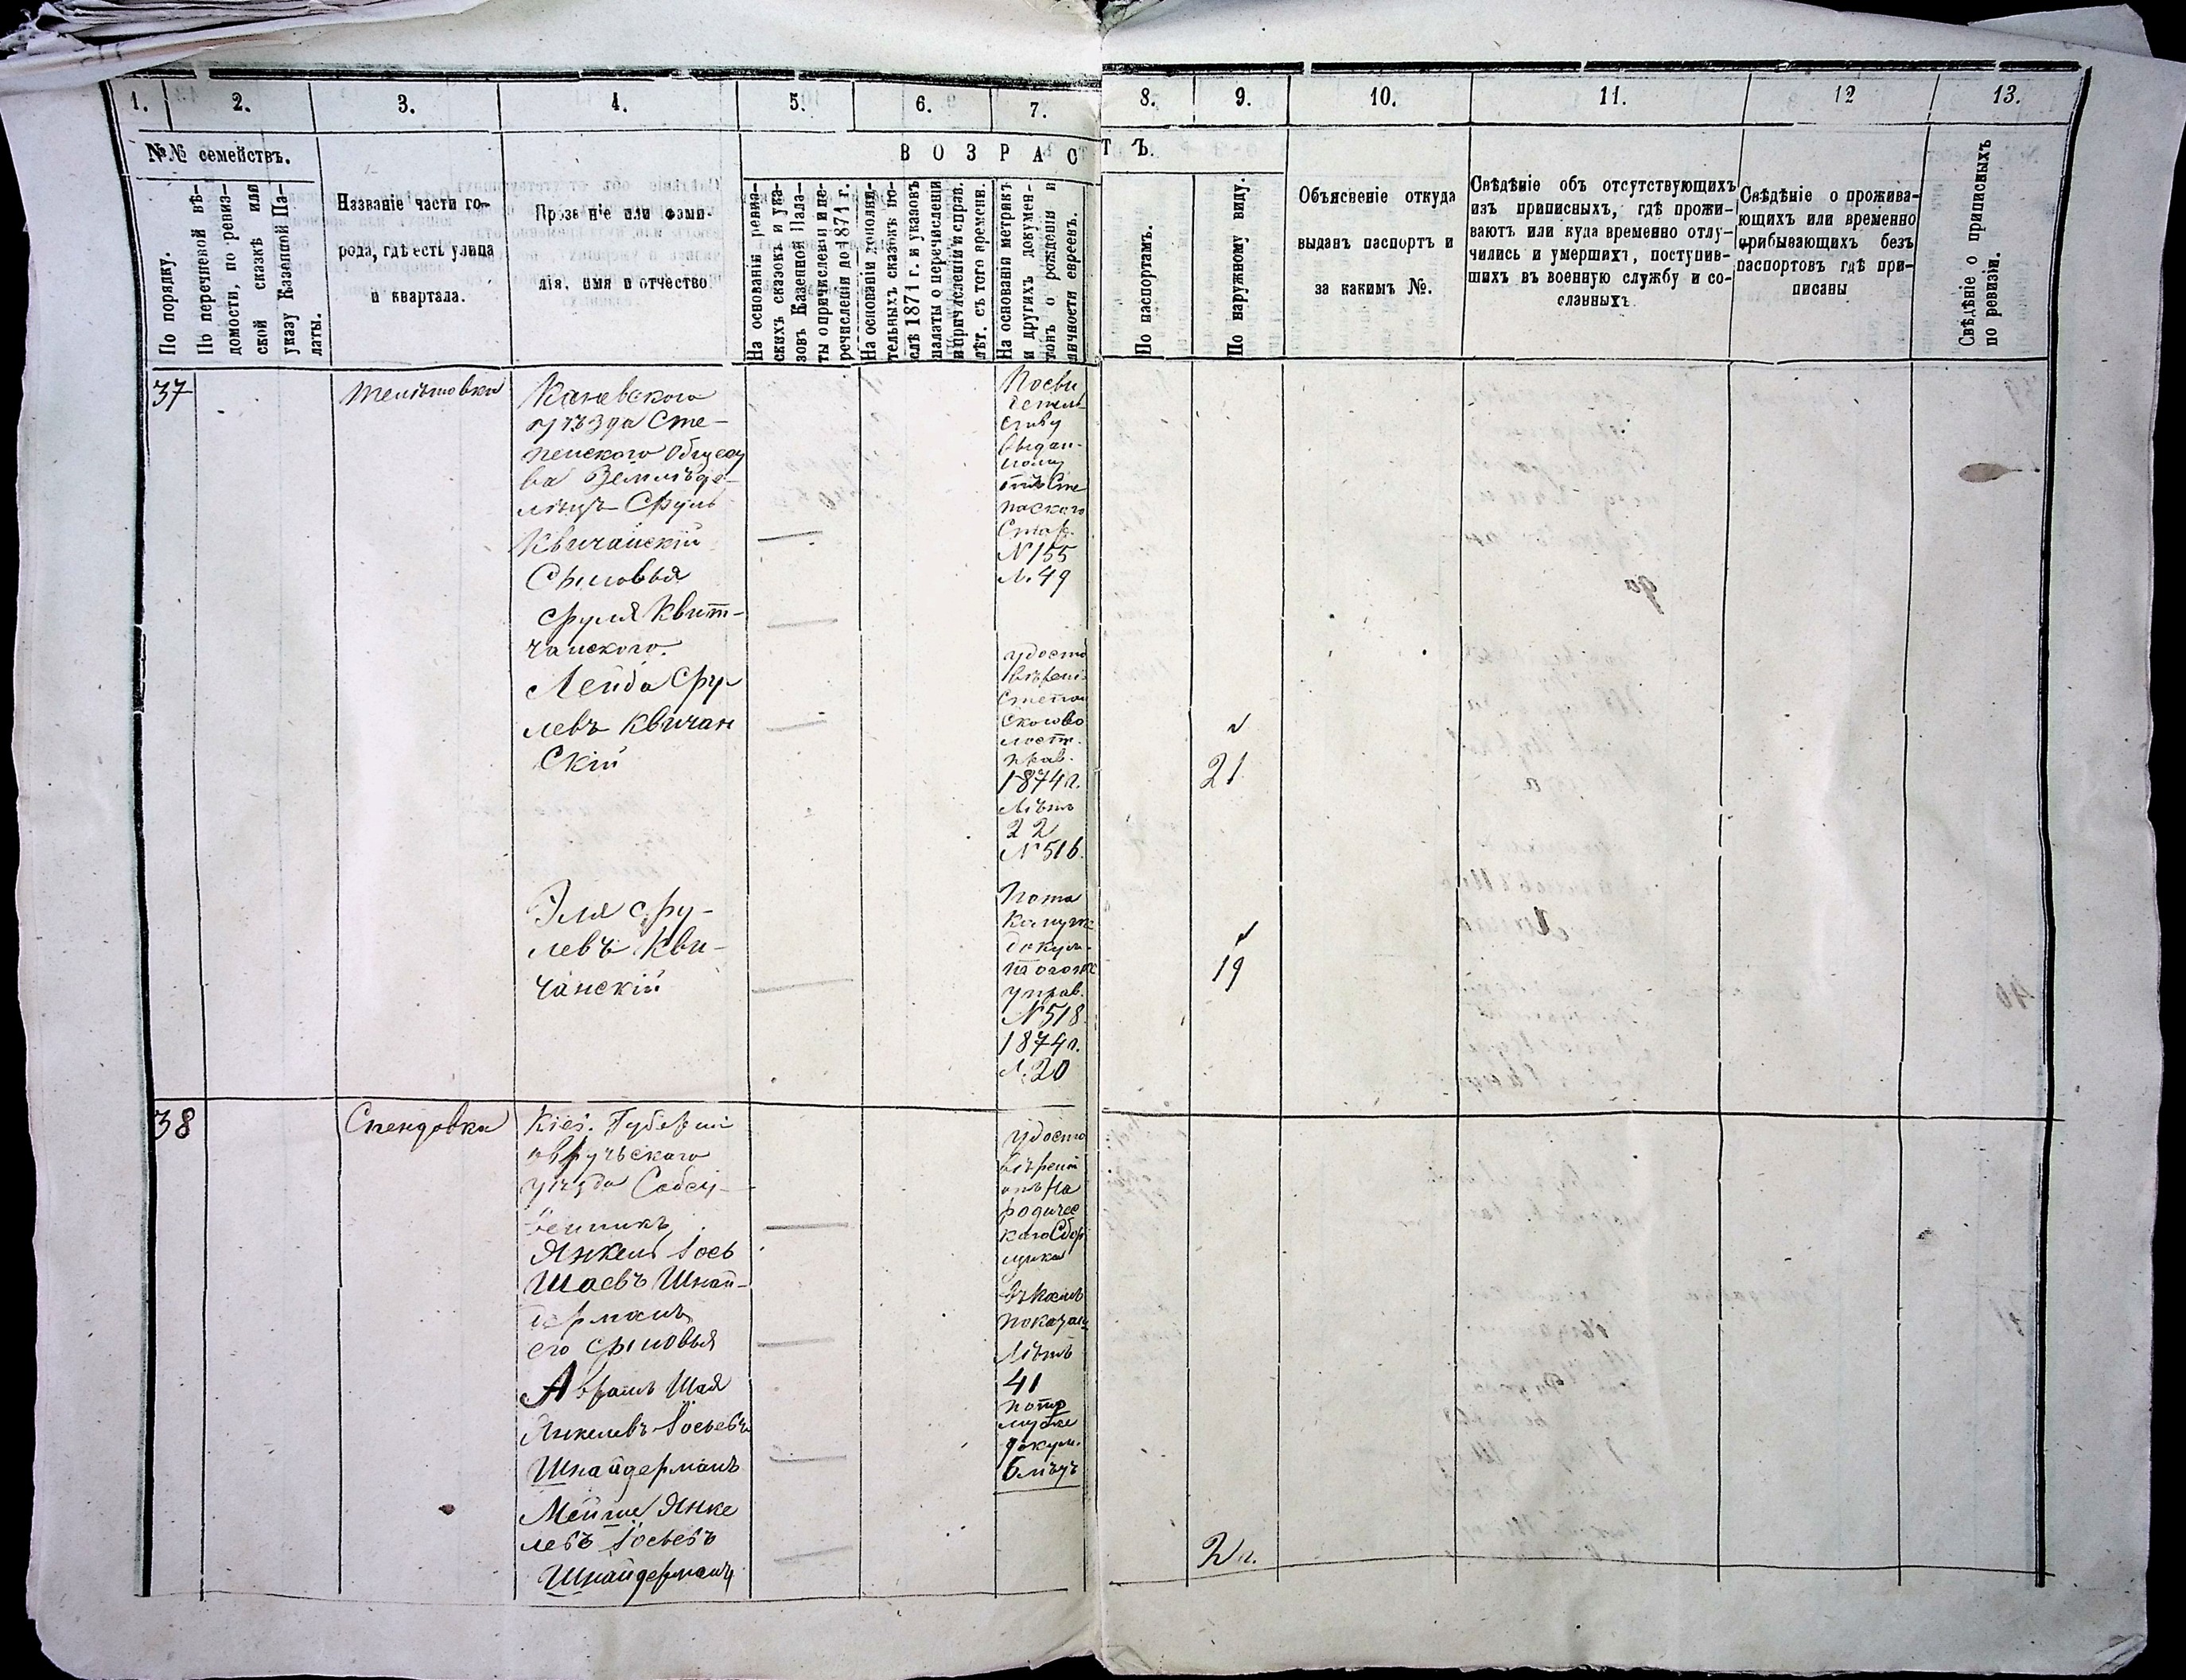 1. 2. 3. 4. 5. 6. 7. 8. 9. 10. 11. 12 13.
№№ семействъ.
В О З Р А С Т Ъ.
По порядку.
По перечневой вѣ-
домости, по ревиз-
ской сказкѣ или
указу Казенной Па-
латы.
Названіе части го-
рода, гдѣ есть улица
и квартала.
Прозв ніе или фами-
лія, имя и отчество
На основаніи ревиз-
скихъ сказокъ и ука-
зовъ Казенной Пала-
ты о причисленіи и пе-
речисленіи до 1871 г.
На основаніи дополни-
тельныхъ сказокъ по-
слѣ 1871 г. и указовъ
палаты о перечисленіи
и причисленіи и справ.
лѣт. съ того времени.
На основаніи метрикъ
и другихъ докумен-
товъ о рожденіи и
личности евреевъ.
По паспортамъ.
По наружному виду.
Объясненіе откуда
выданъ паспортъ и
за какимъ №.
Свѣдѣніе объ отсутствующихъ
изъ приписныхъ, гдѣ прожи-
ваютъ или куда временно отлу-
чились и умершихъ, поступив-
шихъ въ военную службу и со-
сланныхъ
Свѣдѣніе о прожива-
ющихъ или временно
прибывающихъ безъ
паспортовъ гдѣ при-
писаны
Свѣдѣніе о приписныхъ
по ревизіи.
37
Каневскаго
уѣзда Сте-
пенского Общест
ва Земледѣ-
лецъ Сруль
Квичанскій
Сыновья
Сруля Квит-
чанского.
Лейба Сру-
левъ Квичан
скій
Посви
детель
ству
выдан-
ному
отъ Сте
паского
Стар.
N 155
л. 49
удосто
вѣрені
Степан
ского во
лост.
прав.
1874 г.
лѣтъ
22
N 516.
21
Эля Сру-
левъ Кви-
чанскій
Пота
кому же
докум.
того же
управ.
N 518
1874 г.
л. 20
19
38
Спендовка
Кіев. Губерніи
овручьского
уѣзда Собст
венникъ
Янкель Іось
Шаевъ Шнай-
дерманъ
его сыновья
Аврамъ Шая
Янкелевъ Іосьевъ
Шнайдерманъ
Мейше Янке
левъ Іосьевъ
Шнайдерманъ
удосто
вѣреніи
отъ На
родичес
кого Сбор
щика
въ коемъ
показано
лѣтъ
41
по тр
му же
докум.
6 лѣтъ
2 г.